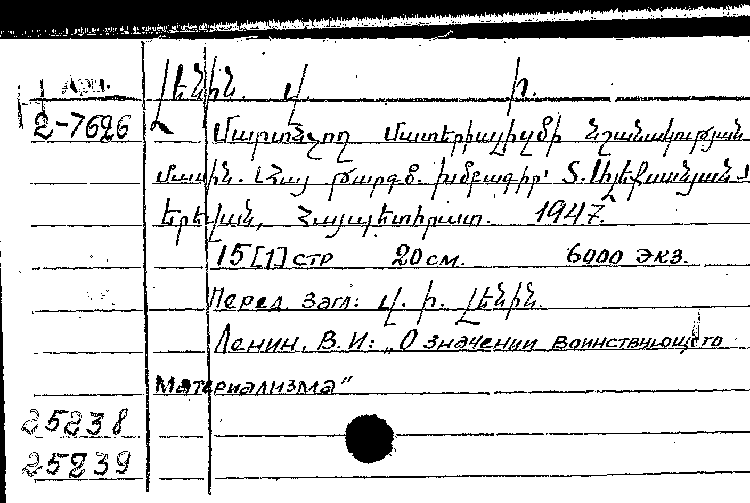 Арм.
Լենին. Վ. Ի.
2-7626 Մարտնչող մատերիալիզմի նշանակության
մասին. Հայ թարգմ. խմբագիր՝ Տ.
Երևան, Հայպետհրատ. 1947.
15 [1] стр 20 см. 6000 экз.
Перед загл: Վ. Ի. Լենին.
Ленин, В. И: „О значении воинствующего
материализма“
25238
25239